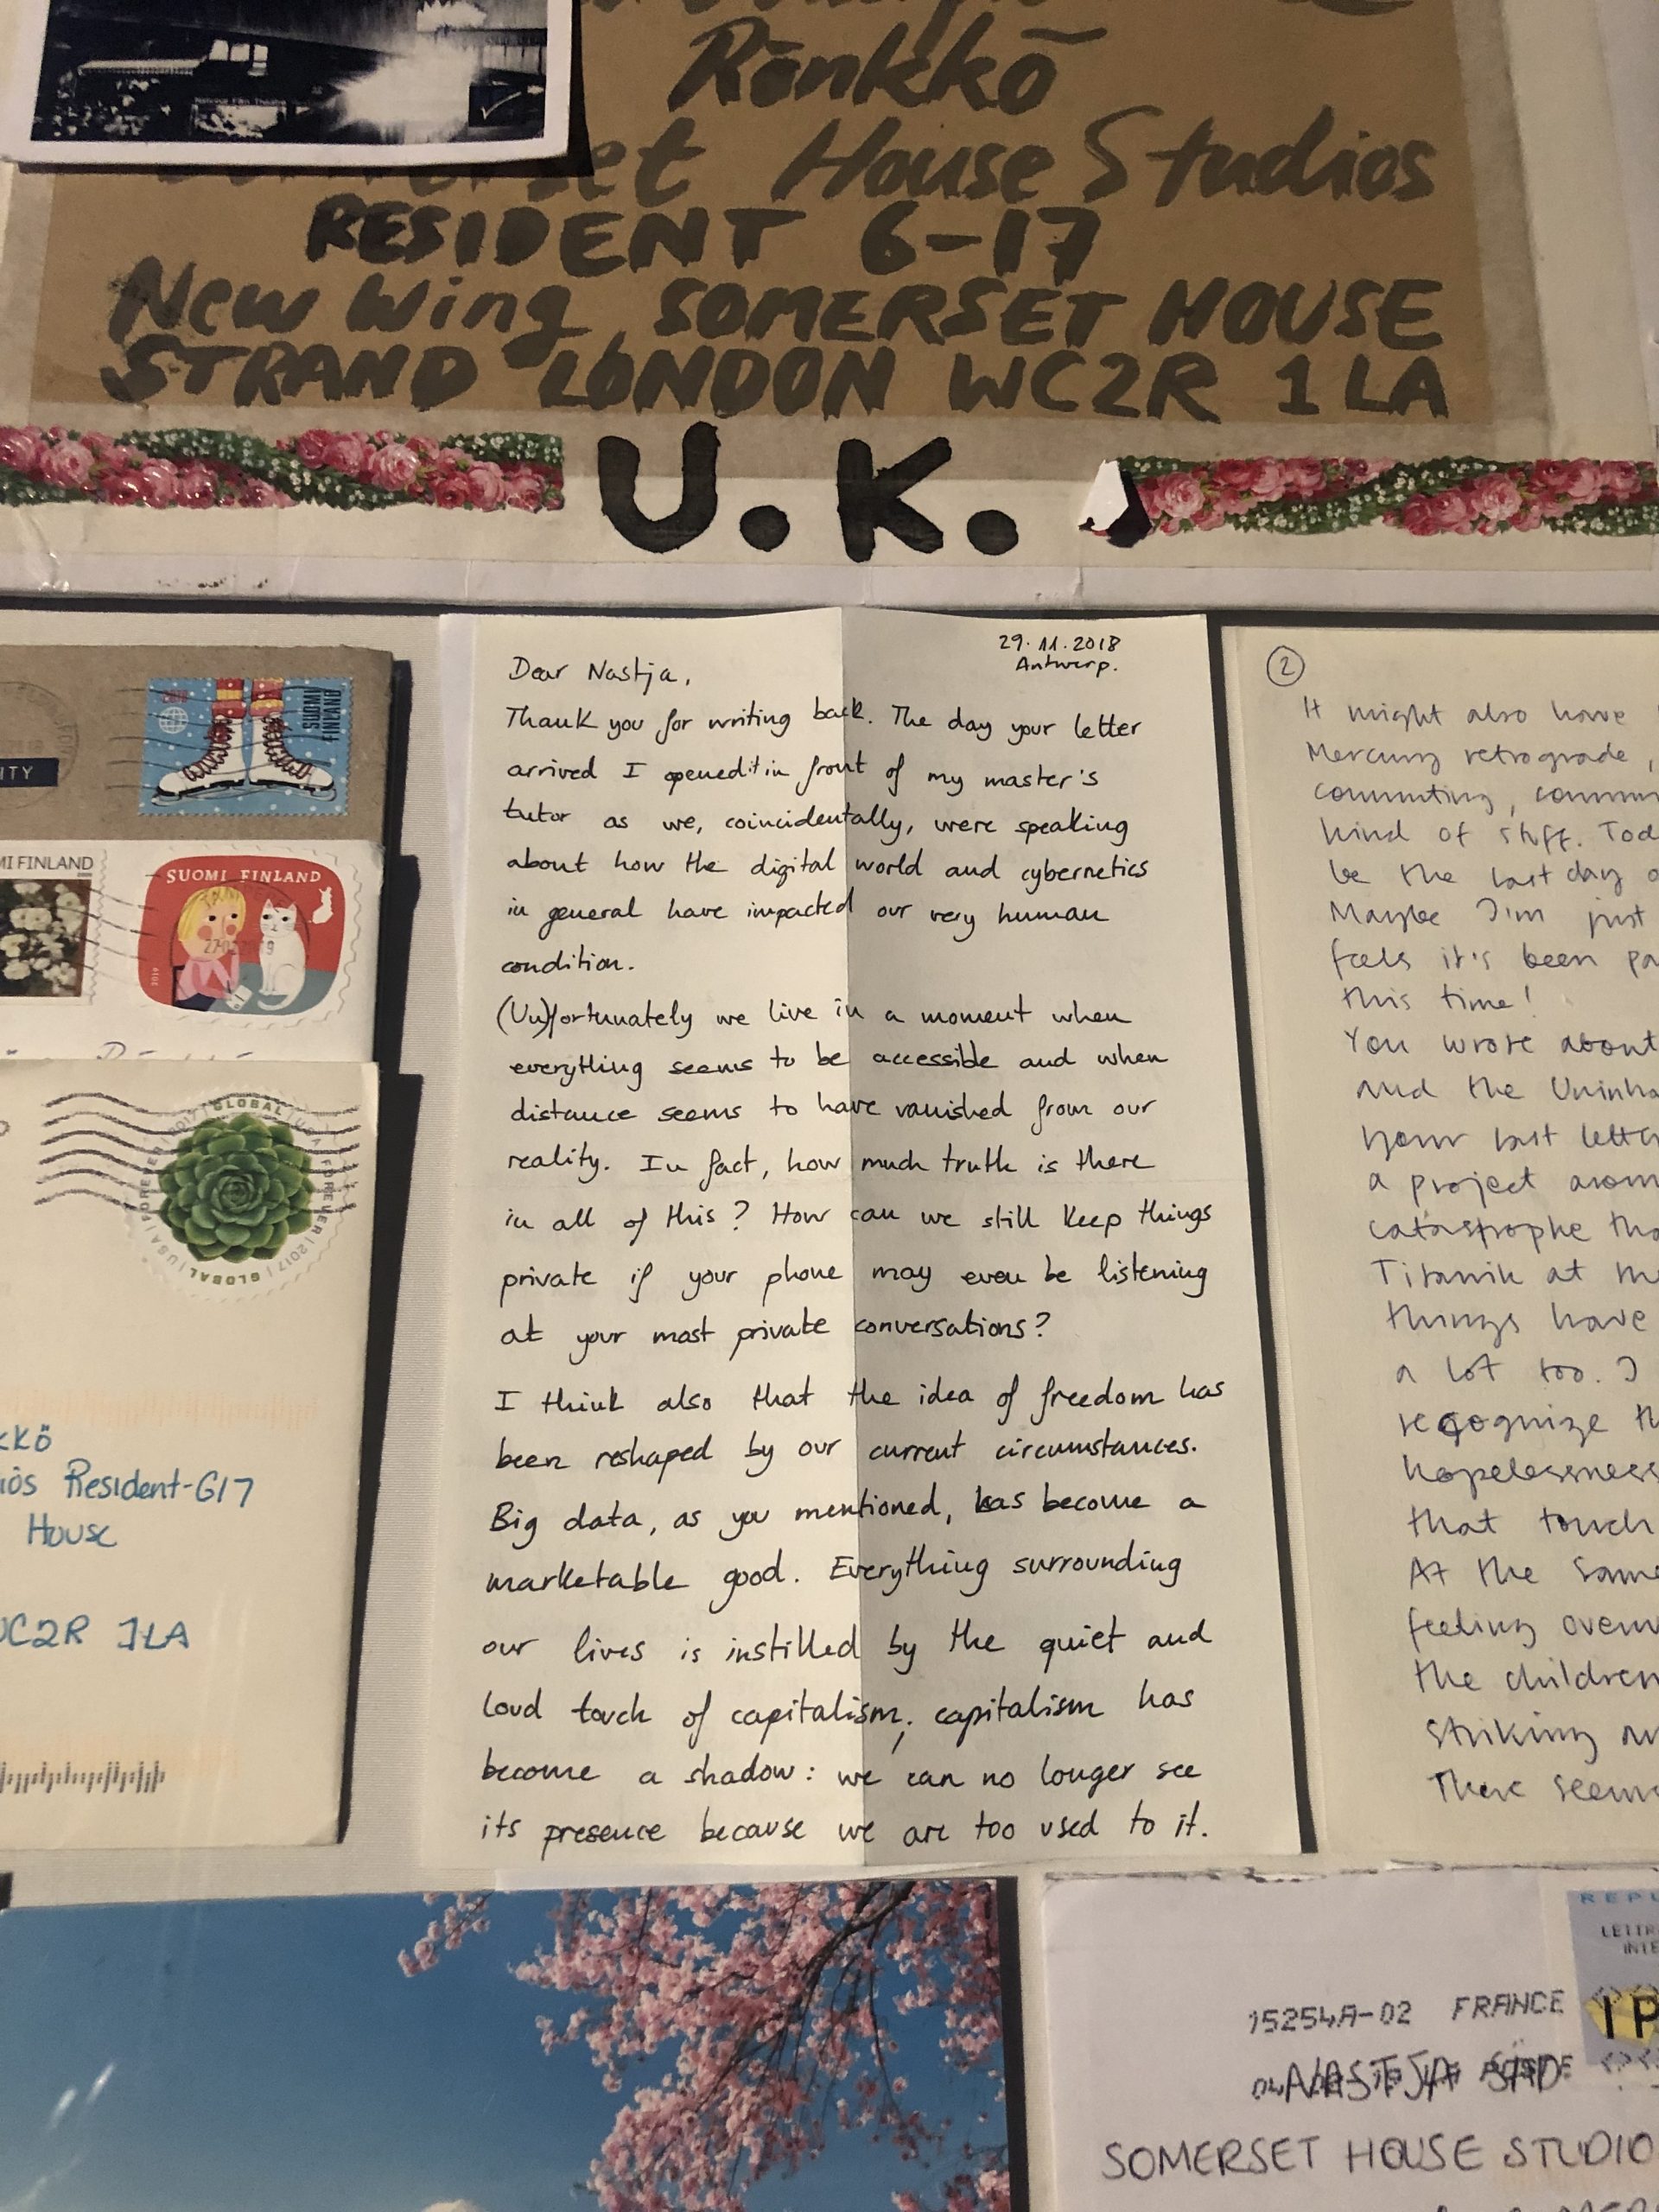 National Film Theatre
Rönkkö
Somerset House Studios
RESIDENT 6-17
New Wing, SOMERSET HOUSE
STRAND LONDON WC2R 1LA
U.K.
ITY
2018
SUOMI
FINLAND
MI FINLAND
SUOMI FINLAND
GLOBAL USA FOREVER 2017 GLOBAL USA FOREVER 2017
kkö
ios Resident-G17
House
WC2R 1LA
29.11.2018
Antwerp.
Dear Nastja,
Thank you for writing back. The day your letter
arrived I opened it in front of my master's
tutor as we, coincidentally, were speaking
about how the digital world and cybernetics
in general have impacted our very human
condition.
(Un)fortunately we live in a moment when
everything seems to be accessible and when
distance seems to have vanished from our
reality. In fact, how much truth is there
in all of this? How can we still keep things
private if your phone may even be listening
at your most private conversations?
I think also that the idea of freedom has
been reshaped by our current circumstances.
Big data, as you mentioned, has become a
marketable good. Everything surrounding
our lives is instilled by the quiet and
loud touch of capitalism; capitalism has
become a shadow: we can no longer see
its presence because we are too used to it.
2
It might also have
Mercury retrograde,
commuting, commun
kind of stuff. Tod
be the last day o
Maybe I'm just
feels it's been pa
this time!
You wrote about
and the Uninha
your last lette
a project aroun
catastrophe tha
Titanik at the
things have
a lot too. I
recognize th
hopelessness
that touch
At the same
feeling overw
the children
striking
There seem
REPU
LETTR
INTE
15254A-02 FRANCE
IP
NASTJA SÄD
SOMERSET HOUSE STUDIO